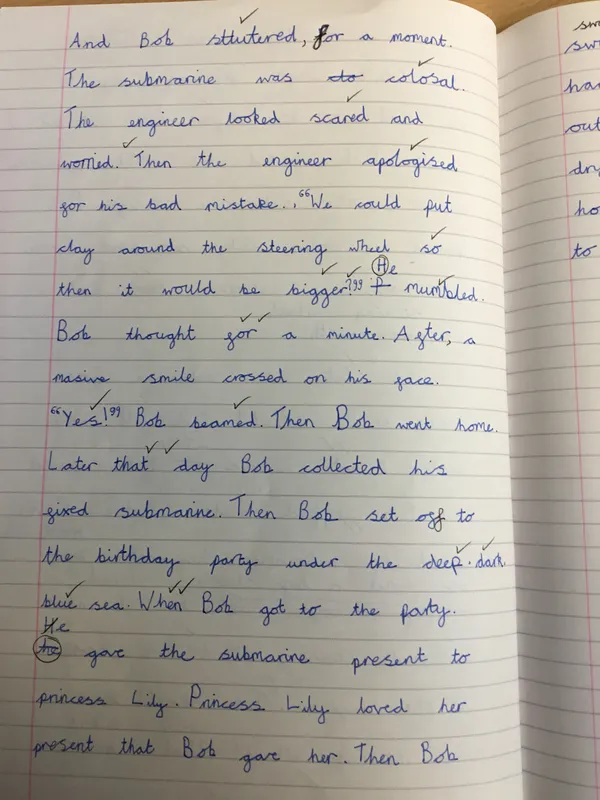 And Bob sttutered, for a moment.
The submarine was to colosal.
The engineer looked scared and
worried. Then the engineer apologised
for his bad mistake. "We could put
clay around the steering wheel so
He
then it would be bigger?" mumbled.
Bob thought for a minute. After, a
masive smile crossed on his face.
"Yes!" Bob beamed. Then Bob went home.
Later that day Bob collected his
fixed submarine. Then Bob set off to
the birthday party under the deep. dark
blue sea. When Bob got to the party.
He
he gave the submarine present to
princess Lily. Princess Lily loved her
present that Bob gave her. Then Bob
sw
ha
out
dry
ho
to